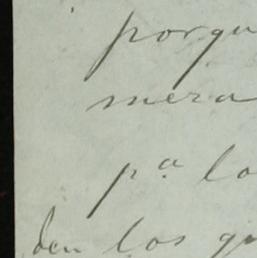 porqu
mera
pª lo
den los qu